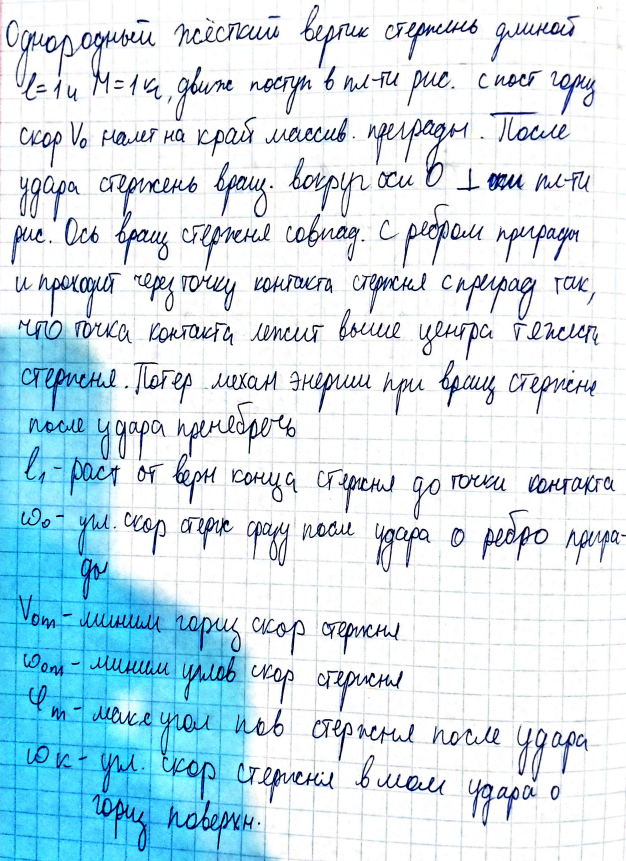 Однородный жёсткий вертик стержень длиной
l=1м M=1кг, движ поступ в пл-ти рис. с пост гориз
скор V₀ налет на край массив. преграды. После
удара стержень вращ. вокруг оси O ⊥ пл-ти
рис. Ось вращ стержня совпад. с ребром преграды
и проходит через точку контакта стержня с преград так,
что точка контакта лежит выше центра тяжести
стержня. Потер механ энергии при вращ стержня
после удара пренебречь
l₁ - раст от верхн конца стержня до точки контакта
ω₀ - угл. скор стерж сразу после удара о ребро прегра-
ды
V₀m - миним гориз скор стержня
ω₀m - миним углов скор стержня
φm - макс угол пов стержня после удара
ωк - угл. скор стержня в мом удара о
гориз поверхн.